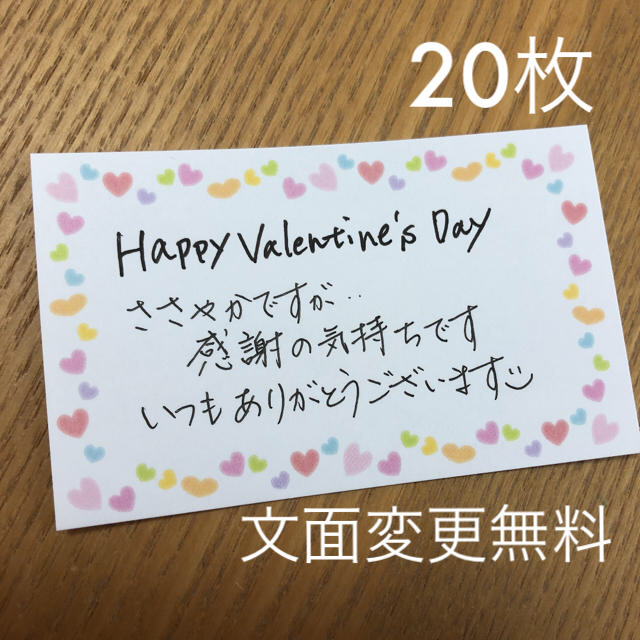 20枚
Happy Valentine's Day
ささやかですが..
感謝の気持ちです
いつもありがとうございます
文面変更無料